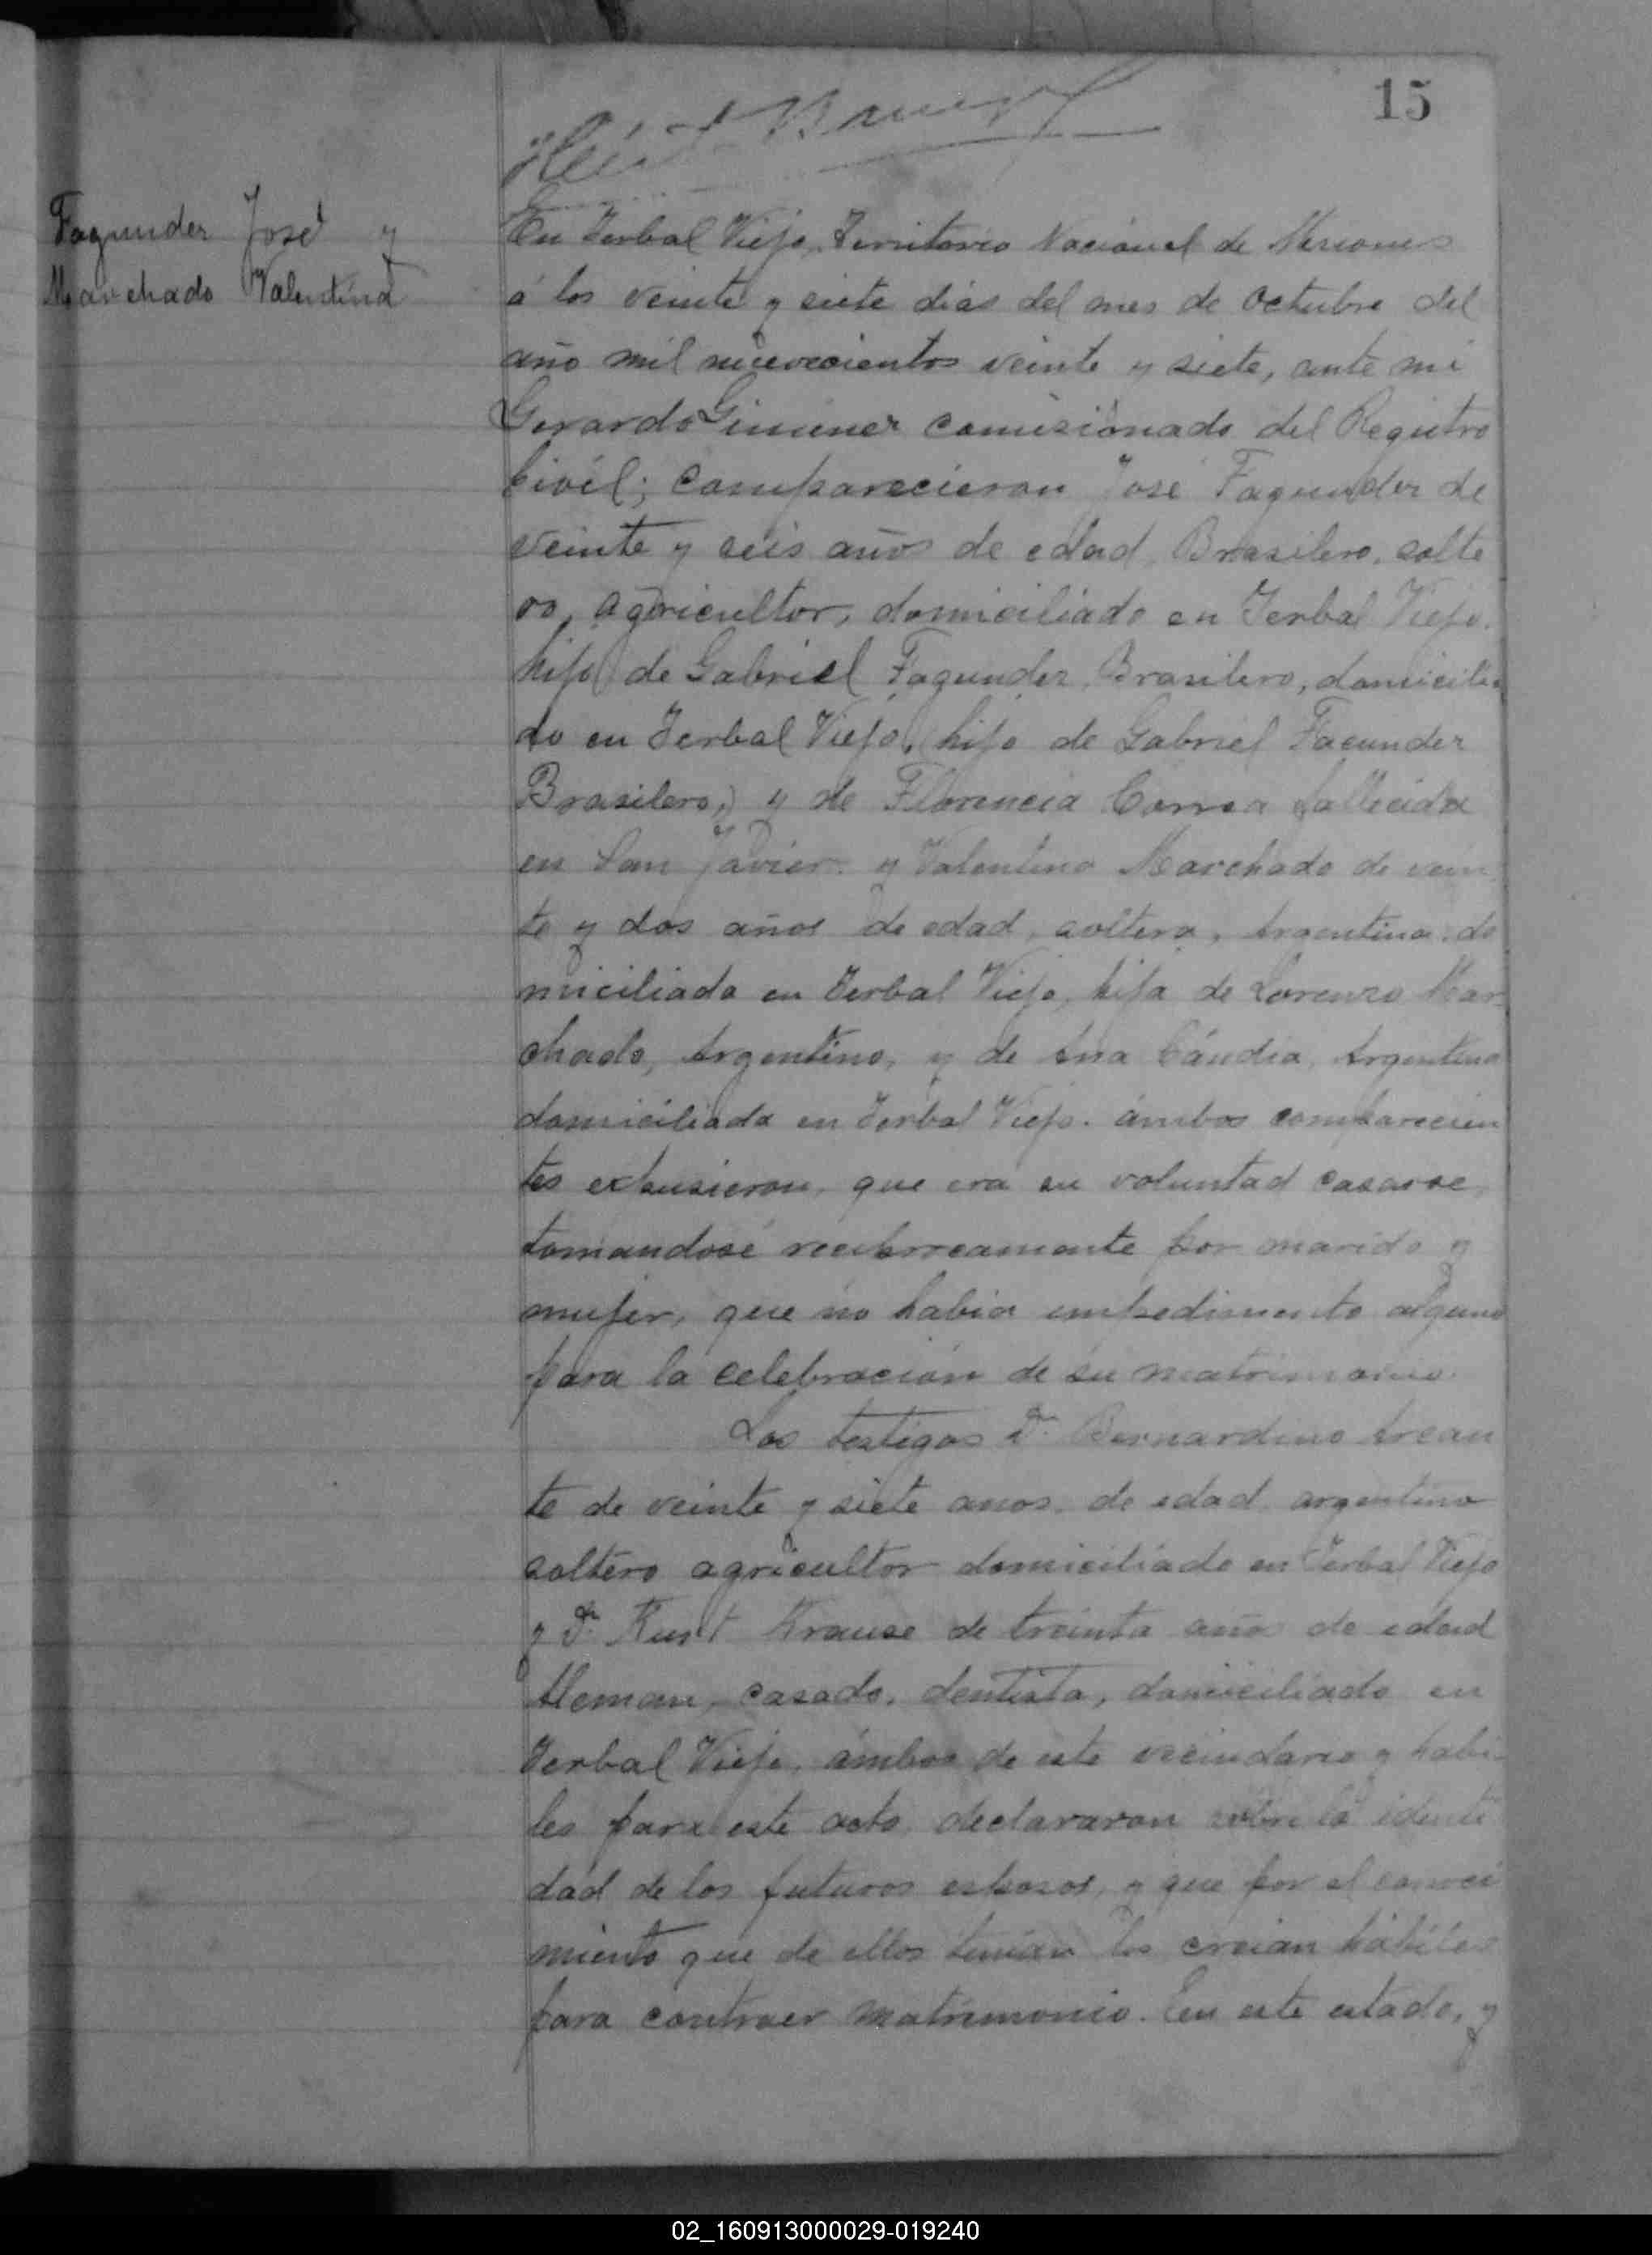 15
Fagundez José y
Marchado Valentina
En Yerbal Viejo, Territorio Nacional de Misiones
á los veinte y siete dias del mes de octubre del
año mil nuevecientos veinte y siete, ante mi
Gerardo Gimenez comisionado del Registro
Civil; comparecieron José Fagundez de
veinte y seis años de edad, Brasilero, solte
ro, agricultor, domiciliado en Yerbal Viejo.
hijo de Gabriel Fagundez, Brasilero, domicilia
do en Yerbal Viejo, (hijo de Gabriel Facundez
Brasilero,) y de Florencia Correa fallecida
en San Javier. y Valentina Marchado de vein
te y dos años de edad, soltera, Argentina, do
miciliada en Yerbal Viejo, hija de Lorenzo Mar
chado, Argentino, y de Ana Cándia, Argentina
domiciliada en Yerbal Viejo. ámbos comparecien
tes expusieron, que era su voluntad casarse,
tomandosé reciprocamente por marido y
mujer, que no habia impedimento alguno
para la celebración de su matrimonio.
Los testigos Dn. Bernardino
te de veinte y siete anos de edad argentino
soltero agricultor domiciliado en Yerbal Viejo
y Dn. Kurt Krause de treinta años de edad
Aleman, casado, dentista, domiciliado en
Yerbal Viejo, ámbos de este vecindario y habi
les para este acto, declararon sobre la identi
dad de los futuros esposos, y que por el conoci
miento que de ellos tenian los creian hábiles
para contraer matrimonio. En este estado, y
02_160913000029-019240